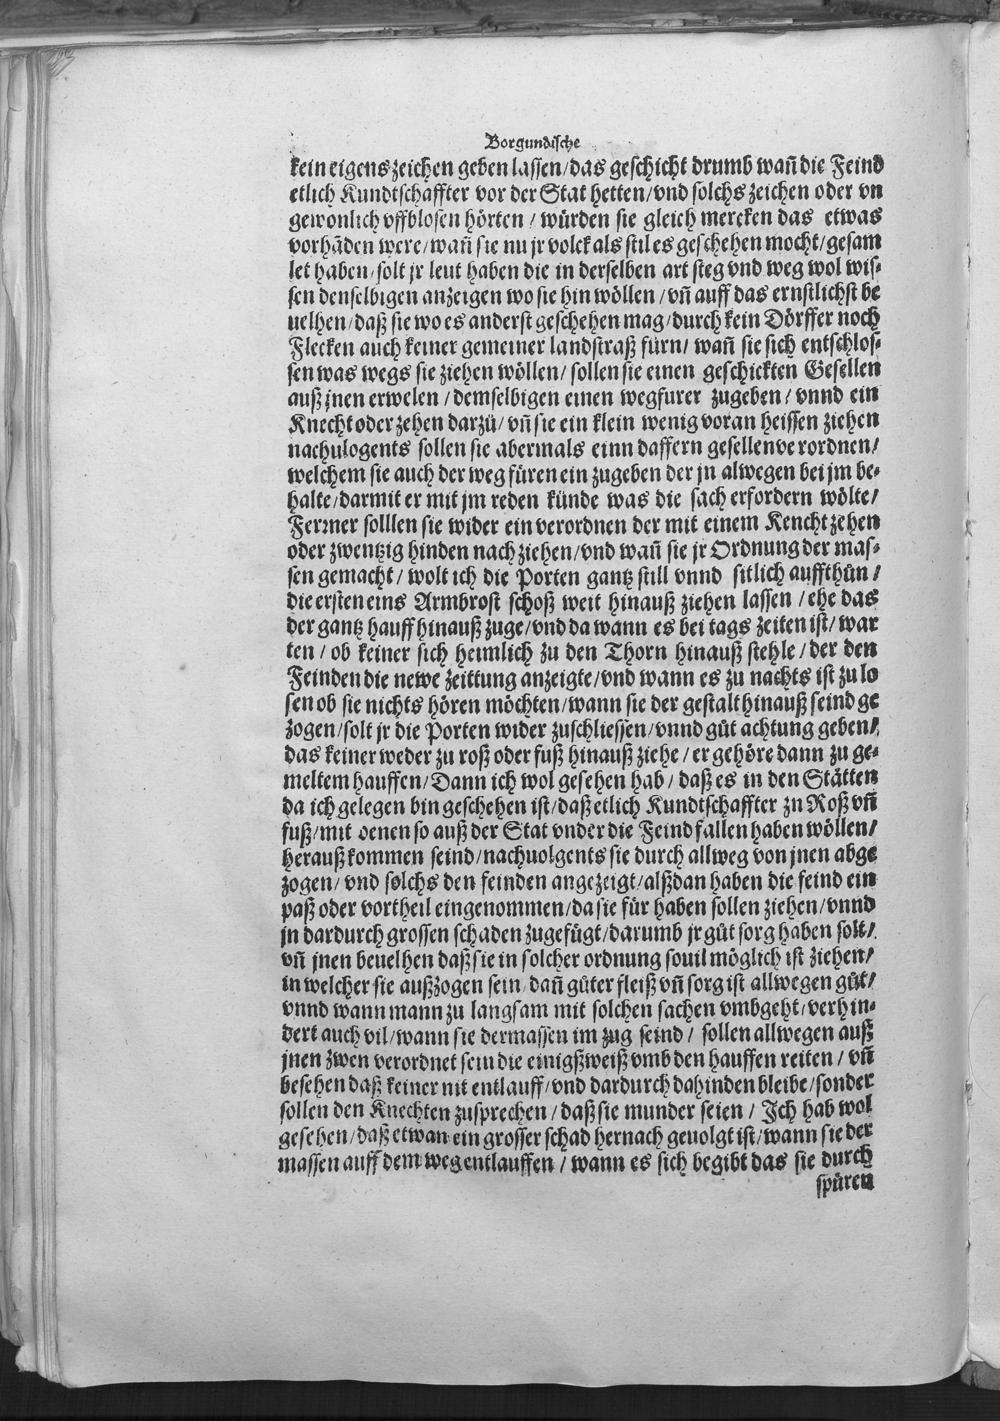 Borgundische
kein eigens zeichen geben lassen/das geschicht drumb wañ die Feind
etlich Kundtschaffter vor der Stat hetten/vnd solchs zeichen oder vn
gewonlich vffblosen hörten/würden sie gleich mercken das etwas
vorhãden were/wañ sie nu jr volck als stil es geschehen mocht/gesam
let haben/solt jr leut haben die in derselben art steg vnd weg wol wis-
sen denselbigen anzeigen wo sie hin wöllen/vñ auff das ernstlichst be
uelhen/daß sie wo es anderst geschehen mag/durch kein Dörffer noch
Flecken auch keiner gemeiner landstraß fürn/wañ sie sich entschlos-
sen was wegs sie ziehen wöllen/sollen sie einen geschickten Gesellen
auß jnen erwelen/demselbigen einen wegfurer zugeben/vnnd ein
Knecht oder zehen darzů/vñ sie ein klein wenig voran heissen ziehen
nachuolgents sollen sie abermals einn daffern gesellen ve rordnen/
welchem sie auch der weg füren ein zugeben der jn alwegen bei jm be-
halte/darmit er mit jm reden künde was die sach erfordern wölte/
Ferrner solllen sie wider ein verordnen der mit einem Kencht zehen
oder zwentzig hinden nach ziehen/vnd wañ sie jr Ordnung der mas-
sen gemacht/wolt ich die Porten gantz still vnnd sitlich auffthůn/
die ersten eins Armbrost schoß weit hinauß ziehen lassen/ehe das
der gantz hauff hinauß zuge/vnd da wann es bei tags zeiten ist/war
ten/ob keiner sich heimlich zu den Thorn hinauß stehle/der den
Feinden die newe zeittung anzeigte/vnd wann es zu nachts ist zu lo
sen ob sie nichts hören möchten/wann sie der gestalt hinauß seind ge
zogen/solt jr die Porten wider zuschliessen/vnnd gůt achtung geben/
das keiner weder zu roß oder fuß hinauß ziehe/er gehöre dann zu ge-
meltem hauffen/Dann ich wol gesehen hab/daß es in den Stätten
da ich gelegen bin geschehen ist/daß etlich Kundtschaffter zu Roß vñ
fuß/mit denen so auß der Stat vnder die Feind fallen haben wöllen/
herauß kommen seind/nachuolgents sie durch allweg von jnen abge
zogen/vnd solchs den feinden angezeigt/alßdan haben die feind ein
paß oder vortheil eingenommen/da sie für haben sollen ziehen/vnnd
jn dardurch grossen schaden zugefügt/darumb jr gůt sorg haben solt/
vñ jnen beuelhen daß sie in solcher ordnung souil möglich ist ziehen/
in welcher sie außzogen sein/dañ gůter fleiß vñ sorg ist allwegen gůt/
vnnd wann mann zu langsam mit solchen sachen vmbgeht/verhin-
dert auch vil/wann sie dermassen im zug seind/sollen allwegen auß
jnen zwen verordnet sein die einigßweiß vmb den hauffen reiten/vñ
besehen daß keiner nit entlauff/vnd dardurch dahinden bleibe/sonder
sollen den Knechten zusprechen/daß sie munder seien/Ich hab wol
gesehen/daß etwan ein grosser schad hernach geuolgt ist/wann sie der
massen auff dem weg entlauffen/wann es sich begibt das sie durch
spüren